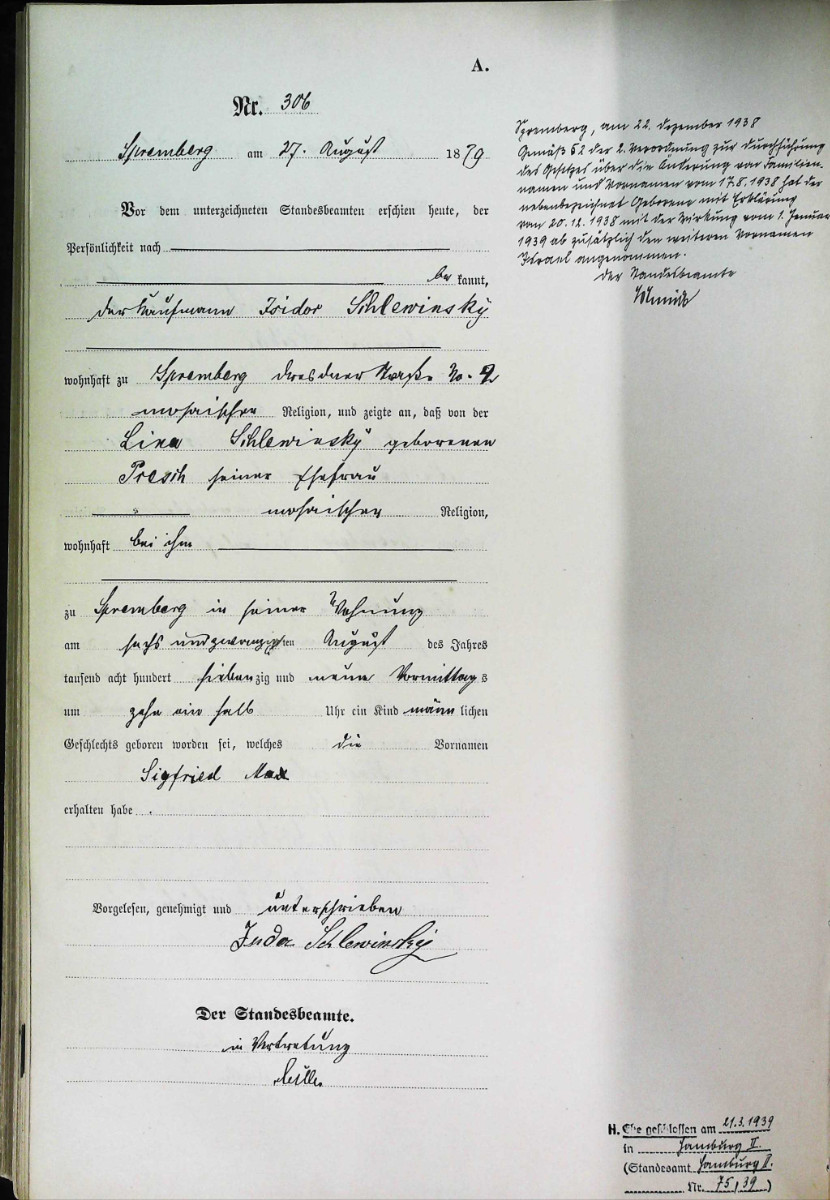 A.
Nr. 306
Spremberg am 27. August 1879
Vor dem unterzeichneten Standesbeamten erschien heute, der
Persönlichkeit nach
be kannt,
der Kaufmann Isidor Schlewinsky
wohnhaft zu Spremberg Dresdner Straße No. 2
mosaischer Religion, und zeigte an, daß von der
Lina Schlewinsky geborenen
Presch seiner Ehefrau
mosaischer Religion,
wohnhaft bei ihm
zu Spremberg in seiner Wohnung
am sechs und zwanzigsten August des Jahres
tausend acht hundert siebenzig und neun Vormittags
um zehn ein halb Uhr ein Kind männlichen
Geschlechts geboren worden sei, welches die Vornamen
Sigfried Max
erhalten habe.
Vorgelesen, genehmigt und unterschrieben
Schlewinsky
Der Standesbeamte.
in Vertretung
Spremberg, am 22. Dezember 1938
Gemäß § 2 der 2. Verordnung zur Durchführung
des Gesetzes über die Änderung von Familien-
namen und Vornamen vom 17.8.1938 hat der
nebenbezeichnet Geborene mit Erklärung
vom 20.12.1938 mit der Wirkung vom 1. Januar
1939 ab zusätzlich den weiteren Vornamen
Israel angenommen.
Der Standesbeamte
Schmidt
H. Ehe geschlossen am 21.3.1939
in Hamburg II.
(Standesamt Hamburg II.
Nr. 75/39)